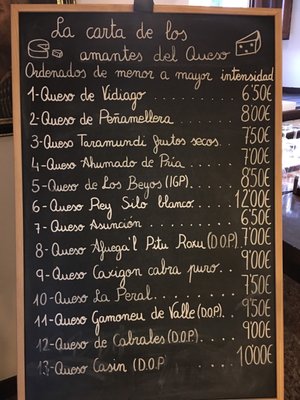 La carta de los
amantes del Queso
Ordenados de menor a mayor intensidad
1-Queso de Vidiago ........ 6'50€
2-Queso de Peñamellera ....... 8'00€
3-Queso Taramundi frutos secos. 7'50€
4-Queso Ahumado de Pría ...... 7'00€
5-Queso de Los Beyos (IGP)..... 8'50€
6-Queso Rey Silo blanco.... 12'00€
7-Queso Asunción ........ 6'50€
8-Queso Afuega'l Pitu Roxu (D.O.P). 7'00€
9-Queso Caxigon cabra puro... 9'00€
10-Queso La Peral........ 7'50€
11-Queso Gamoneu de Valle (D.O.P). 9'50€
12-Queso de Cabrales (D.O.P) .... 9'00€
13-Queso Casin (D.O.P 10'00€